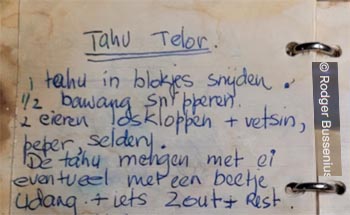 Tahu Telor.
1 tahu in blokjes snijden.
1/2 bawang snipperen.
2 eieren loskloppen + vetsin,
peper, selderij.
De tahu mengen met ei
eventueel met een beetje
udang + iets zout + Rest.
© Rodger Bussenius